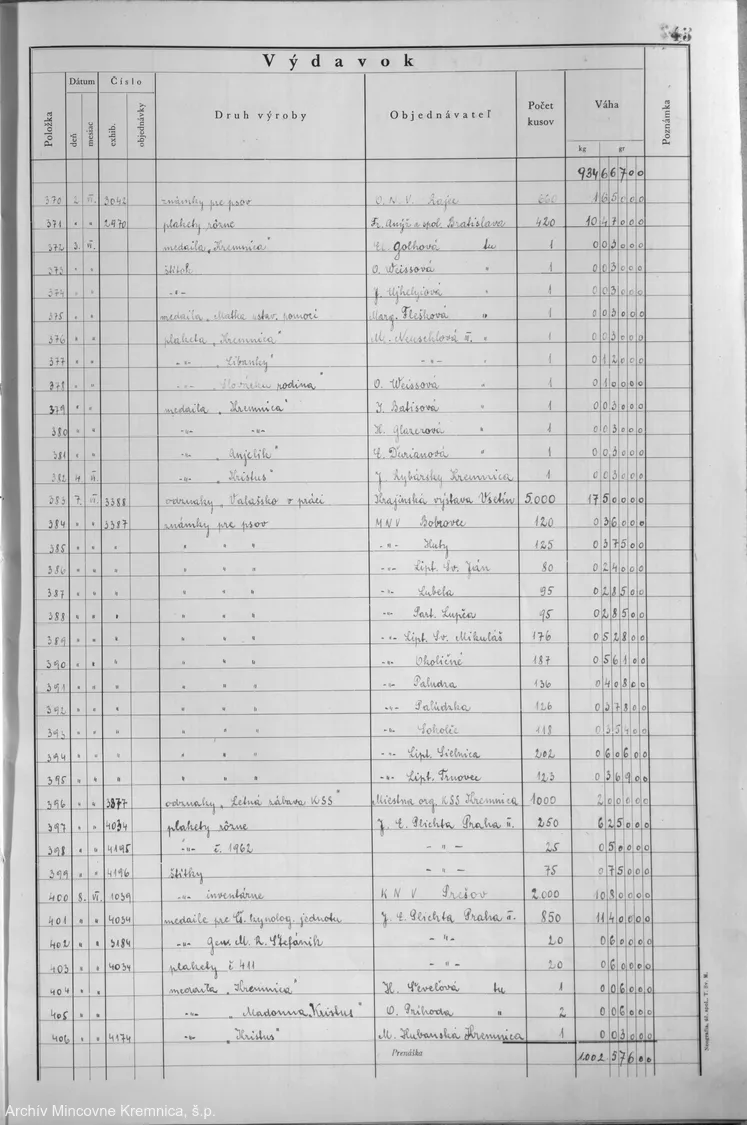 Výdavok
Položka | Dátum deň mesiac | Číslo exhib. objednávky | Druh výroby | Objednávateľ | Počet kusov | Váha kg gr | Poznámka
934 667 00
370 2. VI. 3042 známky pre psov O.N.V. Rajec 165000
371 " " 2970 plakety rôzne Fr. Anýž a spol. Bratislava 420 1047000
372 3. VI. medaila „Kremnica" Golhová tu 1 003000
373 " " štítok O. Weissová " 1 003000
374 " " -"- J. 1 003000
375 " " medaila „Matka ustav. pomoci Marg. Flešková " 1 003000
376 " " plaketa „Kremnica" M. Neuschlová II. " 1 003000
377 " " -"- „Líbánky" -"- " 1 012000
378 " " -"- rodina" O. Weissová " 1 010000
379 " " medaila „Kremnica" J. Batisová " 1 003000
380 -"- -"- H. Glazerová " 1 003000
381 " " -"- „Anjelik" E. Durianová " 1 003000
382 4. VI. -"- „Kristus" J. Rybársky Kremnica 1 003000
383 7. VI. 3388 odznaky „Valašsko v práci Krajinská výstava Vsetín 5.000 1750000
384 " " 3387 známky pre psov MNV Bobrovec 120 036000
385 " " " " " " -"- Huty 125 037500
386 " " " " " " -"- Lipt. Sv. Ján 80 024000
387 " " " " " " -"- Lubela 95 028500
388 " " " " " " -"- Part. Lupča 95 028500
389 " " " " " " -"- Lipt. Sv. Mikuláš 176 052800
390 " " " " " " -"- Okoličné 187 056100
391 " " " " " " -"- Paludza 136 040800
392 " " " " " " -"- Palúdzka 126 037800
393 " " " " " " -"- Sokolče 118 035400
394 " " " " " " -"- Lipt. Sielnica 202 060600
395 " " " " " " -"- Lipt. Trnovec 123 036900
396 " " 3877 odznaky „Letná zábava KSS" Miestna org. KSS Kremnica 1000 200000
397 " " 4034 plakety rôzne J. E. Plichta Praha II. 250 625000
398 " " 4195 -"- č. 1962 -"- 25 050000
399 " " 4196 štítky -"- 75 075000
400 8. VI. 1039 -"- inventárne KNV Prešov 2.000 1080000
401 " " 4034 medaile pre Čs. kynolog. jednotu J. E. Plichta Praha II. 850 1140000
402 " " 3184 -"- Gen. M. R. Štefánik -"- 20 060000
403 " " 4034 plakety č 411 -"- 20 060000
404 " " medaila „Kremnica" H. Ševeľová tu 1 006000
405 " " -"- „Madonna, Kristus" O. Príhoda " 2 006000
406 " " 4174 -"- „Kristus" M. Hubanská Kremnica 1 003000
Prenáška 1.002 576 00
Archív Mincovne Kremnica, š.p.